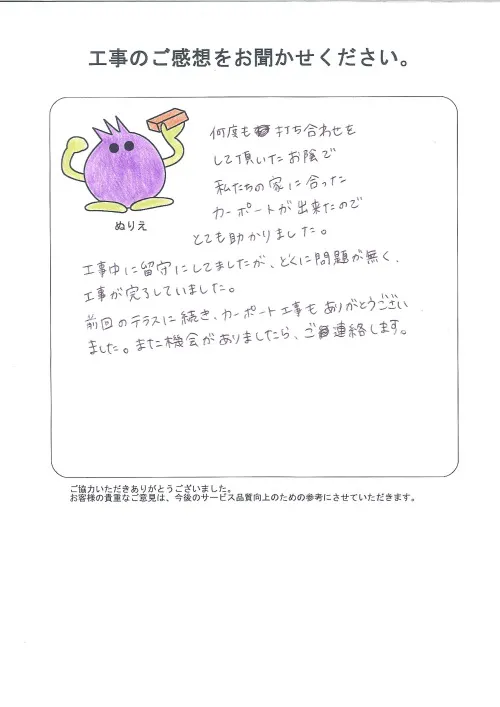 工事のご感想をお聞かせください。
ぬりえ
何度も打ち合わせを
して頂いたお陰で
私たちの家に合った
カーポートが出来たので
とても助かりました。
工事中に留守にしてましたが、とくに問題が無く、
工事が完了していました。
前回のテラスに続き、カーポート工事もありがとうござい
ました。また機会がありましたら、ご連絡します。
ご協力いただきありがとうございました。
お客様の貴重なご意見は、今後のサービス品質向上のための参考にさせていただきます。